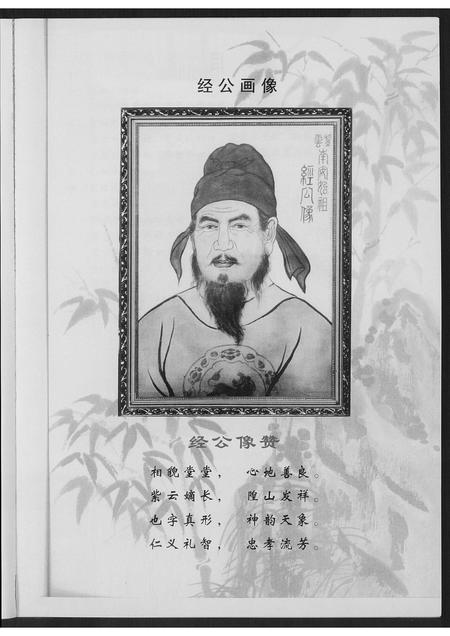 经公画像
紫雲南安始祖
經公像
经公像赞
相貌堂堂，心地善良。
紫云嫡长，隍山发祥。
也字真形，神韵天象。
仁义礼智，忠孝流芳。